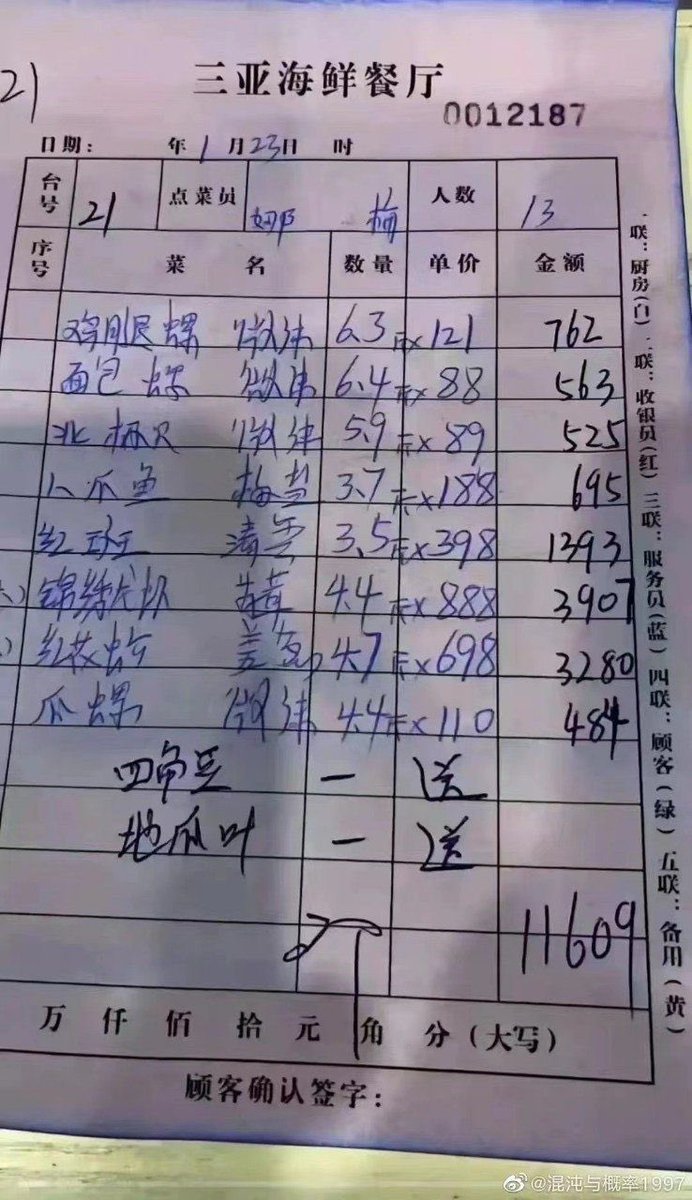 21
三亚海鲜餐厅
0012187
日期: 年1月23日 时
台号 21 点菜员 娜 梅 人数 13
序号 菜名 数量 单价 金额
鸡腿螺 6.3斤×121 762
面包螺 6.4斤×88 563
北极贝 5.9斤×89 525
八爪鱼 梅盐 3.7斤×188 695
红斑 清 3.5斤×398 1393
锦绣龙虾 4.4斤×888 3907
红花蟹 姜葱 4.7斤×698 3280
爪螺 4.4斤×110 484
四角豆 一 送
地瓜叶 一 送
11609
万仟佰拾元角分(大写)
顾客确认签字:
一联:厨房(白)二联:收银员(红)三联:服务员(蓝)四联:顾客(绿)五联:备用(黄)
@混沌与概率1997